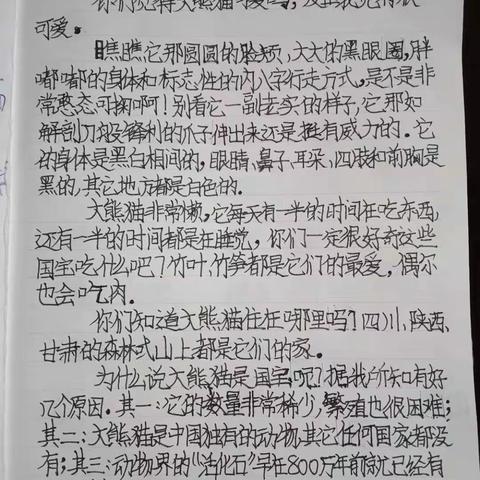 你们觉得大熊猫可爱吗，反正我觉得很
可爱。
瞧瞧它那圆圆的脸颊，大大的黑眼圈，胖
嘟嘟的身体和标志性的内八字行走方式，是不是非
常憨态可掬啊！别看它一副老实的样子，它那如
解剖刀般锋利的爪子伸出来还是挺有威力的。它
的身体是黑白相间的，眼睛、鼻子、耳朵、四肢和前胸是
黑的，其它地方都是白色的。
大熊猫非常懒，它每天有一半的时间在吃东西，
还有一半的时间都是在睡觉，你们一定很好奇这些
国宝吃什么吧？竹叶、竹笋都是它们的最爱，偶尔
也会吃肉。
你们知道大熊猫住在哪里吗？四川、陕西、
甘肃的森林式山上都是它们的家。
为什么说大熊猫是国宝呢？据我所知有好
几个原因。其一：它的数量非常稀少，繁殖也很困难；
其二：大熊猫是中国独有的动物其它任何国家都没
有；其三：动物界的“活化石”早在800万年前就已经有